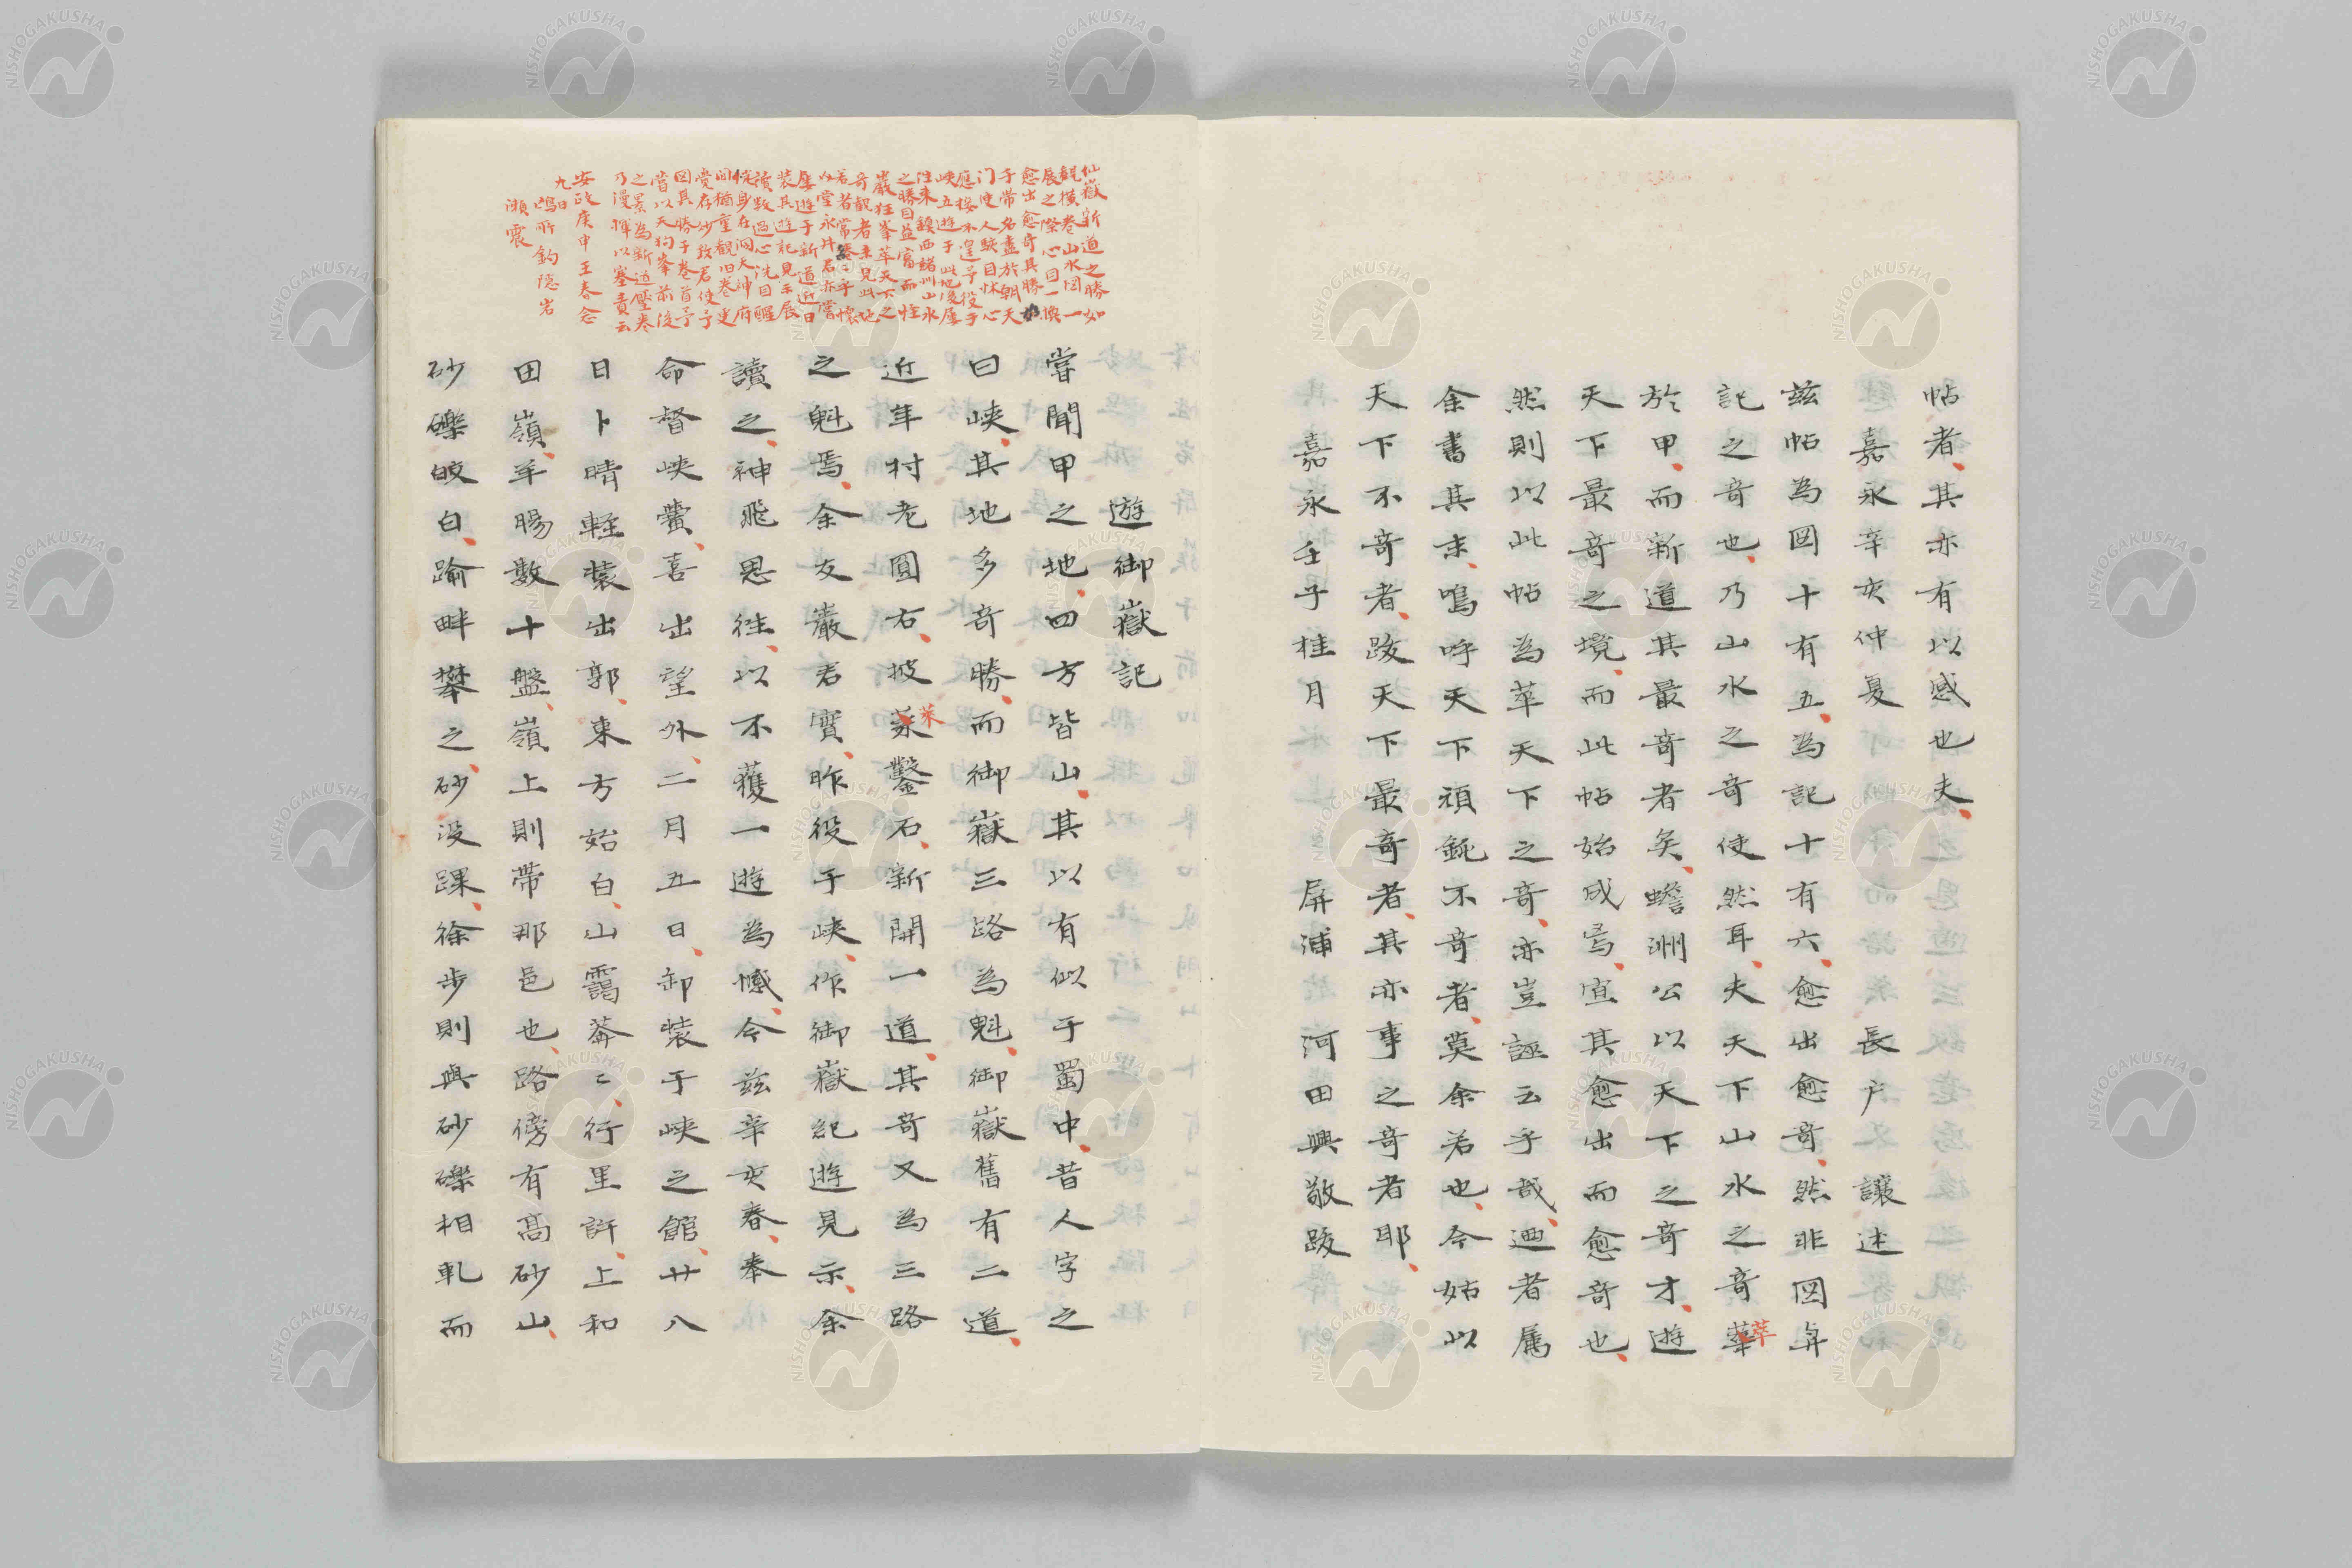 帖者其亦有以感也夫
嘉永辛亥仲夏　長戸　譲述
茲帖為図十有五為記十有六愈出愈奇然非図与
記之奇也乃山水之奇使然耳夫天下山水之奇萃
於甲而新道其最奇者矣蟾洲公以天下之奇才遊
天下最奇之境而此帖始成焉宜其愈出而愈奇也
然則以此帖為萃天下之奇亦豈誣云乎哉廼者属
余書其末嗚呼天下頑鈍不奇者莫余若也今姑以
天下不奇者跋天下最奇者其亦事之奇者耶
嘉永壬子桂月　屏浦　河田興敬跋
遊御嶽記
嘗聞甲之地四方皆山其以有似于蜀中昔人字之
曰峡其地多奇勝而御嶽三路為魁御嶽舊有二道
近年村老圓右披萊鑿石新開一道其奇又為三路
之魁焉余友巌君實昨役于峡作御嶽紀遊見示余
讀之神飛思往以不獲一遊為憾今茲辛亥春奉
命督峡黌喜出望外二月五日卸装于峡之館廿八
日卜晴軽装出郭東方始白山靄莽々行里許上和
田嶺羊腸数十盤嶺上則帶那邑也路傍有高砂山
砂礫皎白踰畔攀之砂没踝徐歩則與砂礫相軋而
仙嶽新道之勝如
観横巻山水図一
展之際心目一愉
愈出愈奇其勝
于帶名盡於朝天
門使人駭目怵心
應接不遑予役于
峡五遊于此地後屡
往来鎮西諸州山水
之勝目益富而恠
巌狂峯萃天下之
奇観者未見此地
若者常
以堂永井君亦嘗
屡遊于新道近日
装其遊記見示展
讀数過心洗目醒
恍身在洞天沖府
間猶重観旧巻更
覚有妙致君使予
図其勝于巻首予
嘗以天狗峯前後
之景為新道壓巻
乃漫揮以塞責云
安政庚申王春念
九日
鳴所釣隠岩
瀬震